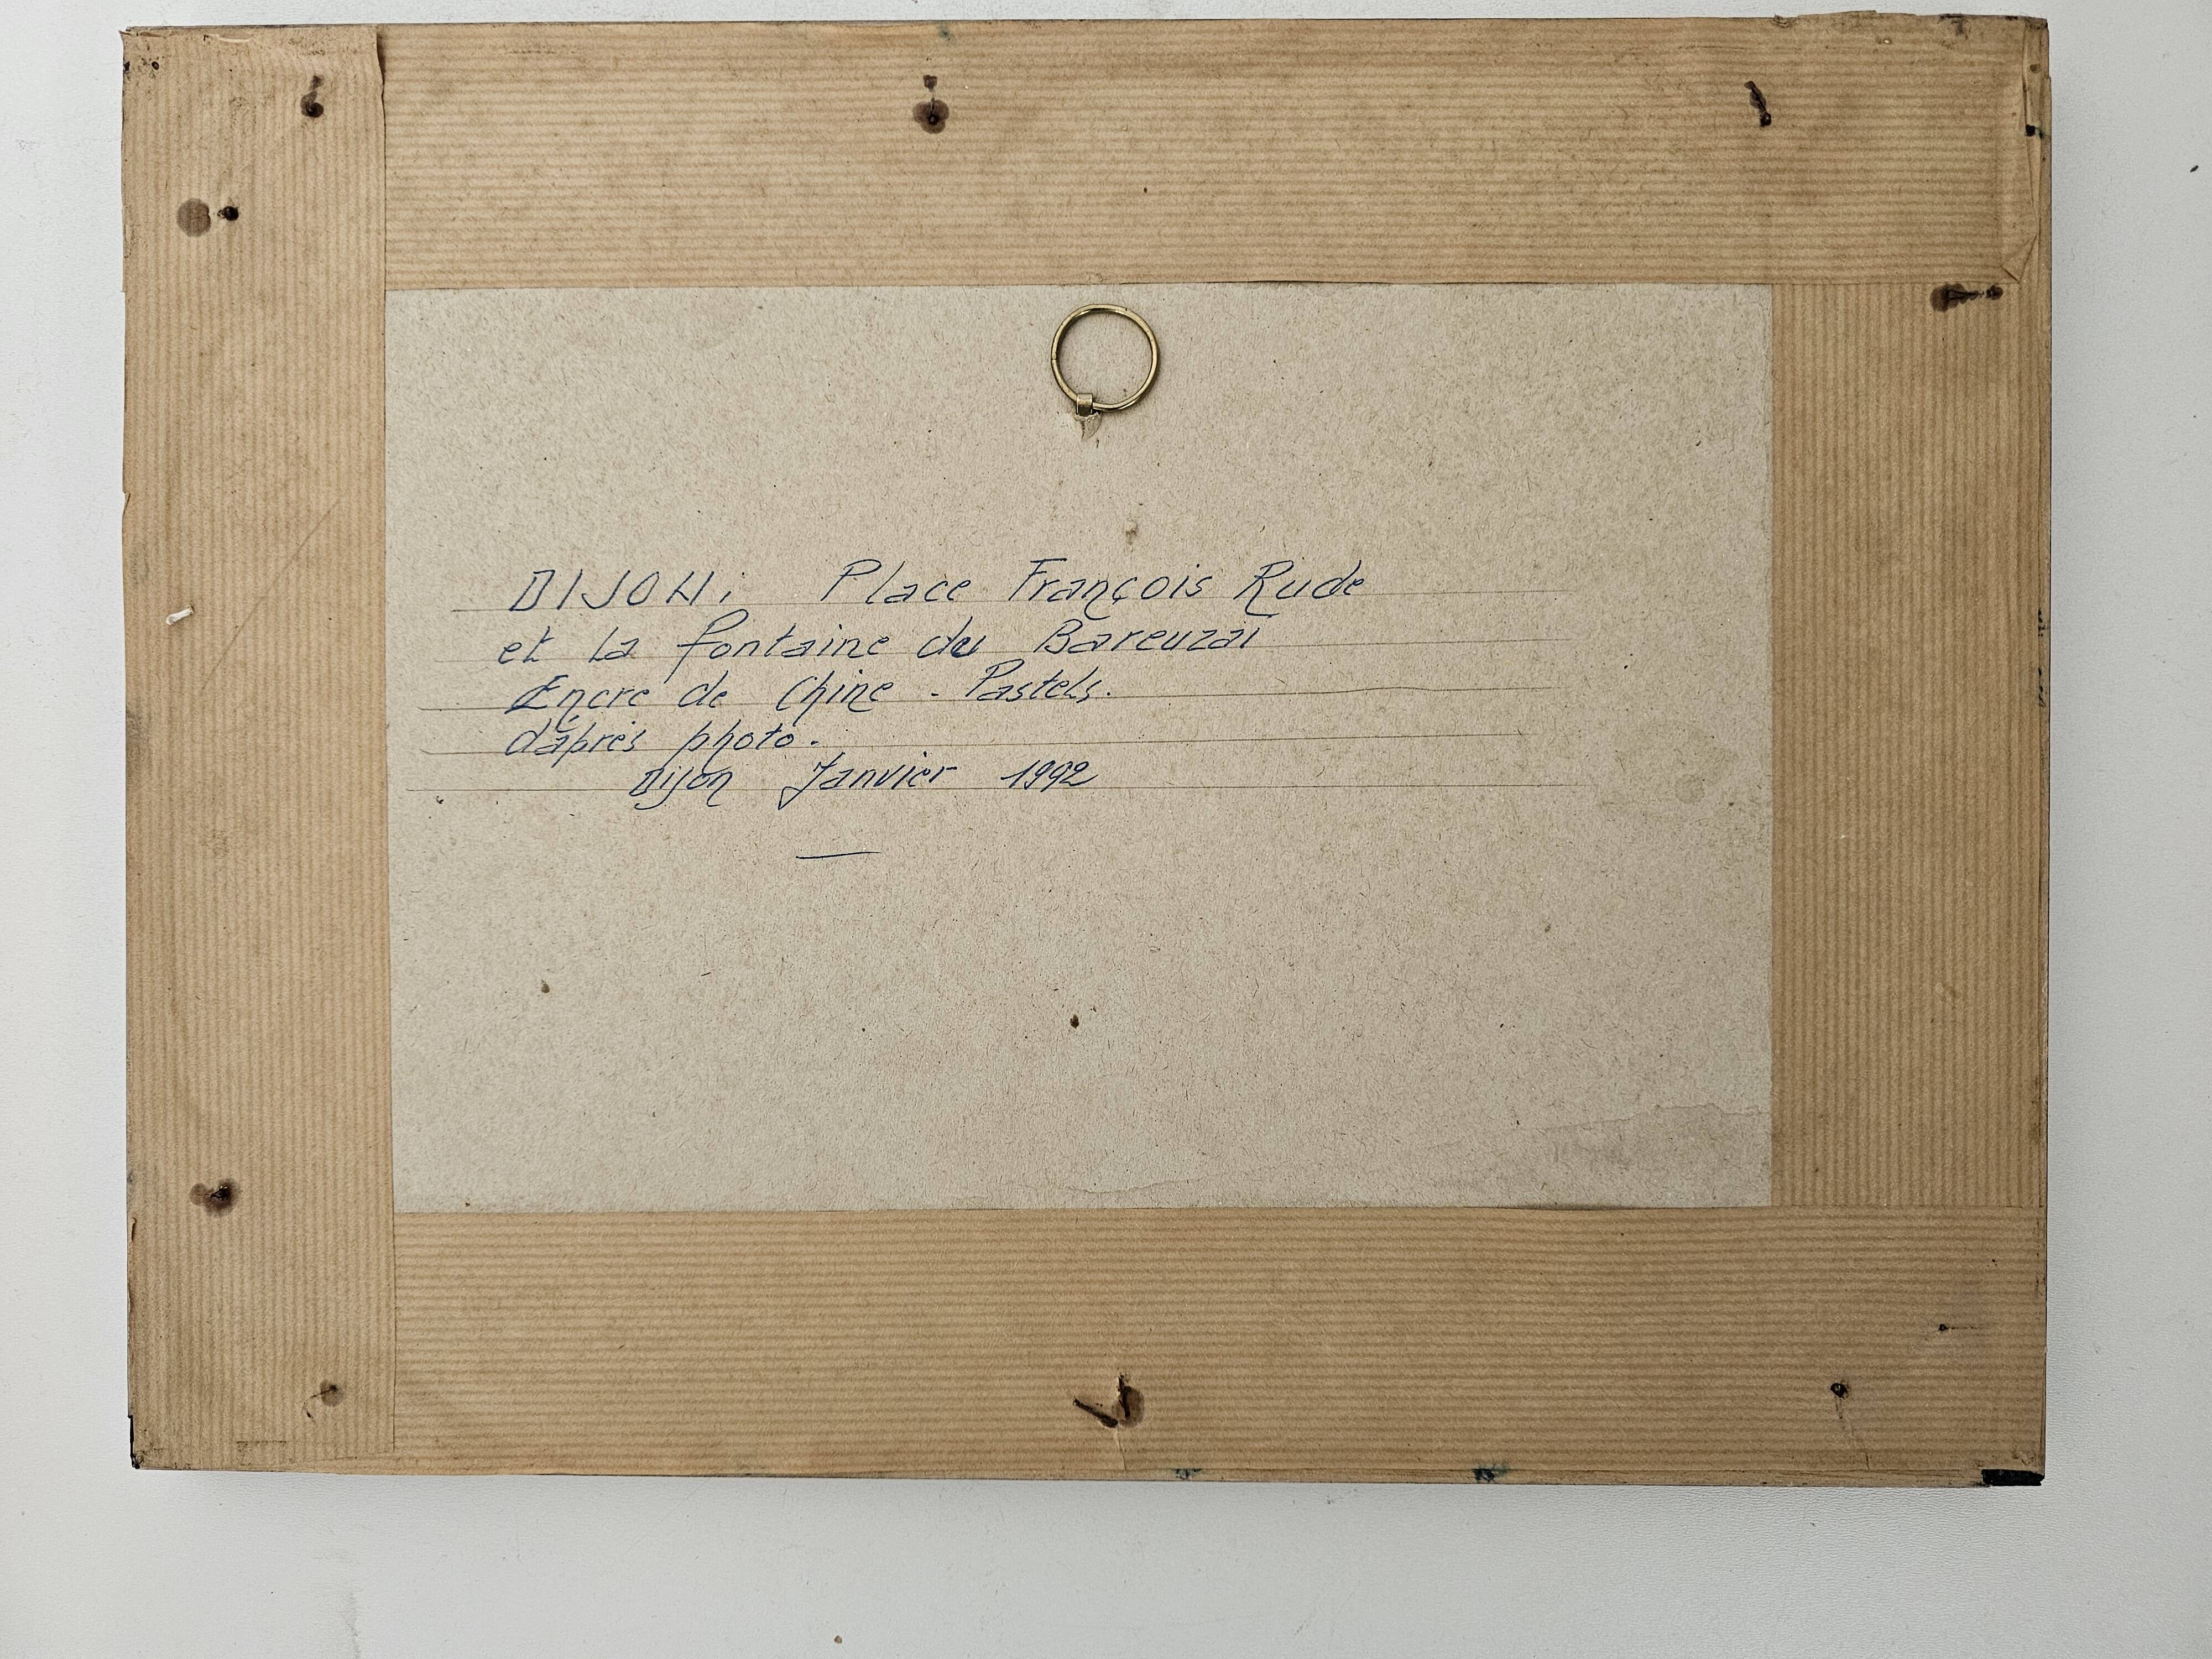 DIJON: Place François Rude
et la fontaine du Bareuzai
Encre de Chine - Pastels.
d'après photo.
Dijon Janvier 1992